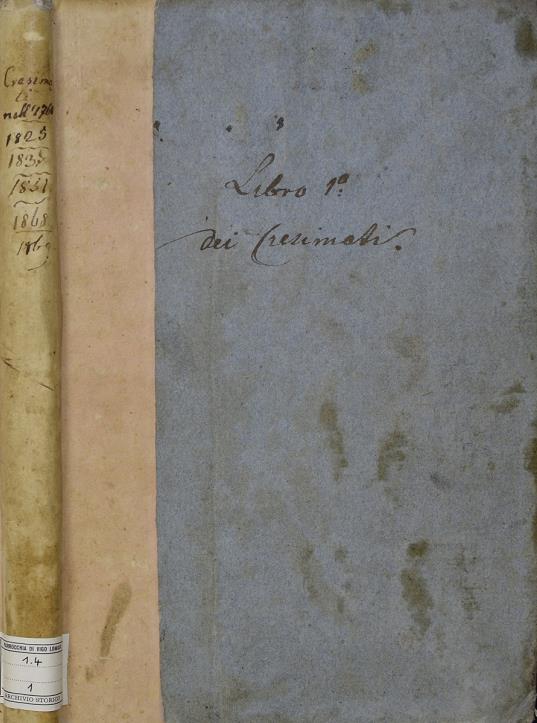 Cresima
ti
nell'
1825
183
1851
1868
1869
Libro 1º
dei Cresimati.
PARROCCHIA DI VIGO
1.4
1
ARCHIVIO STORICO